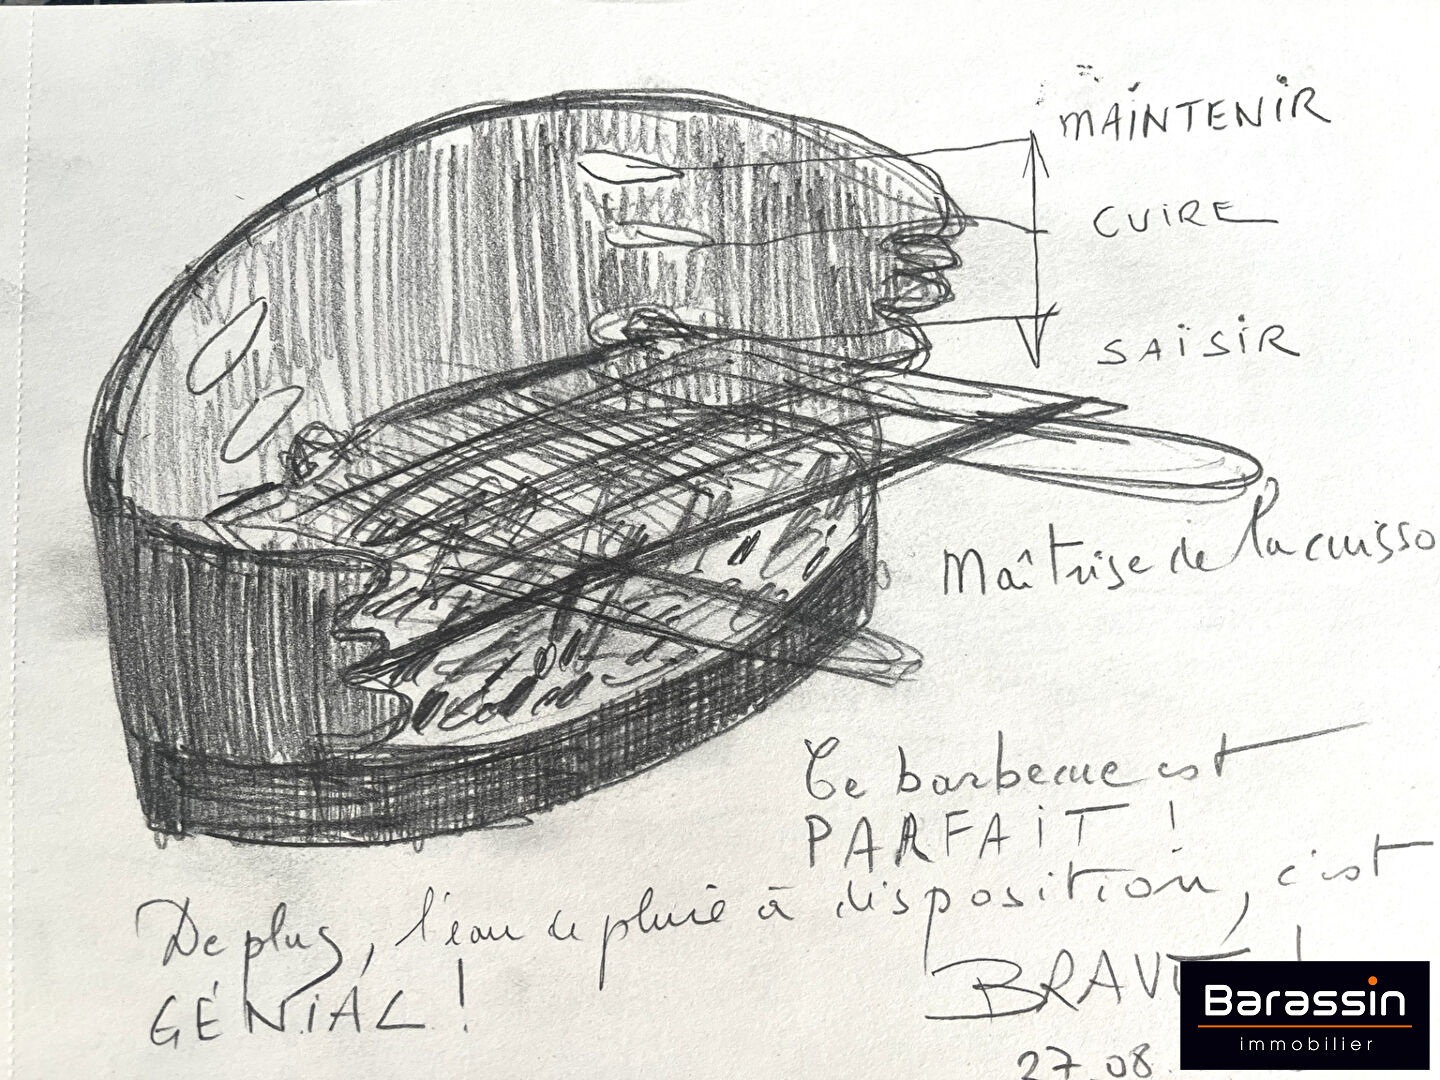 MAINTENIR
CUIRE
SAISIR
Maîtrise de la cuisso
Ce barbecue est
PARFAIT !
De plus, l'eau de pluie à disposition, c'est
GÉNIAL !
BRAVO !
27.08.
Barassin
immobilier